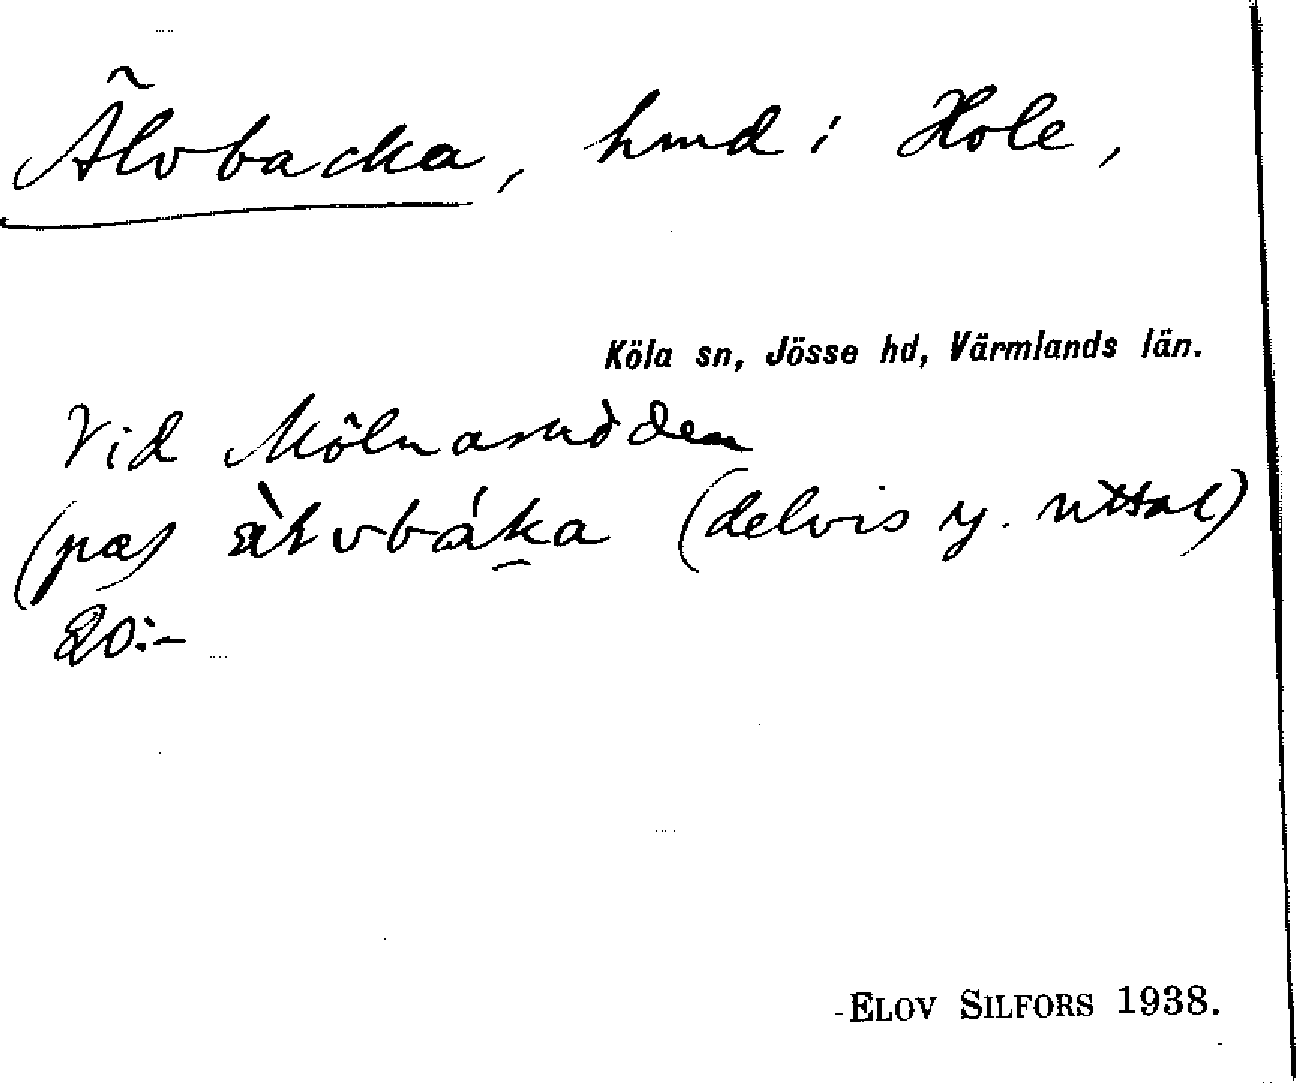 Älvbacka, hmd i Hole,
Köla sn, Jösse hd, Värmlands län.
Vid Mölnarudden
(på) (delvis y. uttal)
20:-
-ELOV SILFORS 1938.